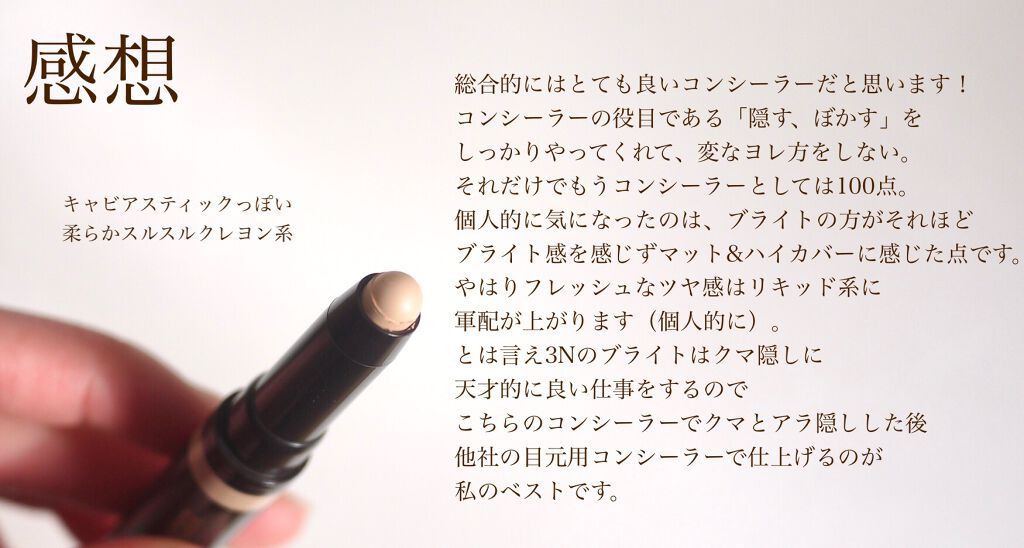 感想
キャビアスティックっぽい
柔らかスルスルクレヨン系
総合的にはとても良いコンシーラーだと思います！
コンシーラーの役目である「隠す、ぼかす」を
しっかりやってくれて、変なヨレ方をしない。
それだけでもうコンシーラーとしては100点。
個人的に気になったのは、ブライトの方がそれほど
ブライト感を感じずマット&ハイカバーに感じた点です。
やはりフレッシュなツヤ感はリキッド系に
軍配が上がります（個人的に）。
とは言え3Nのブライトはクマ隠しに
天才的に良い仕事をするので
こちらのコンシーラーでクマとアラ隠しした後
他社の目元用コンシーラーで仕上げるのが
私のベストです。